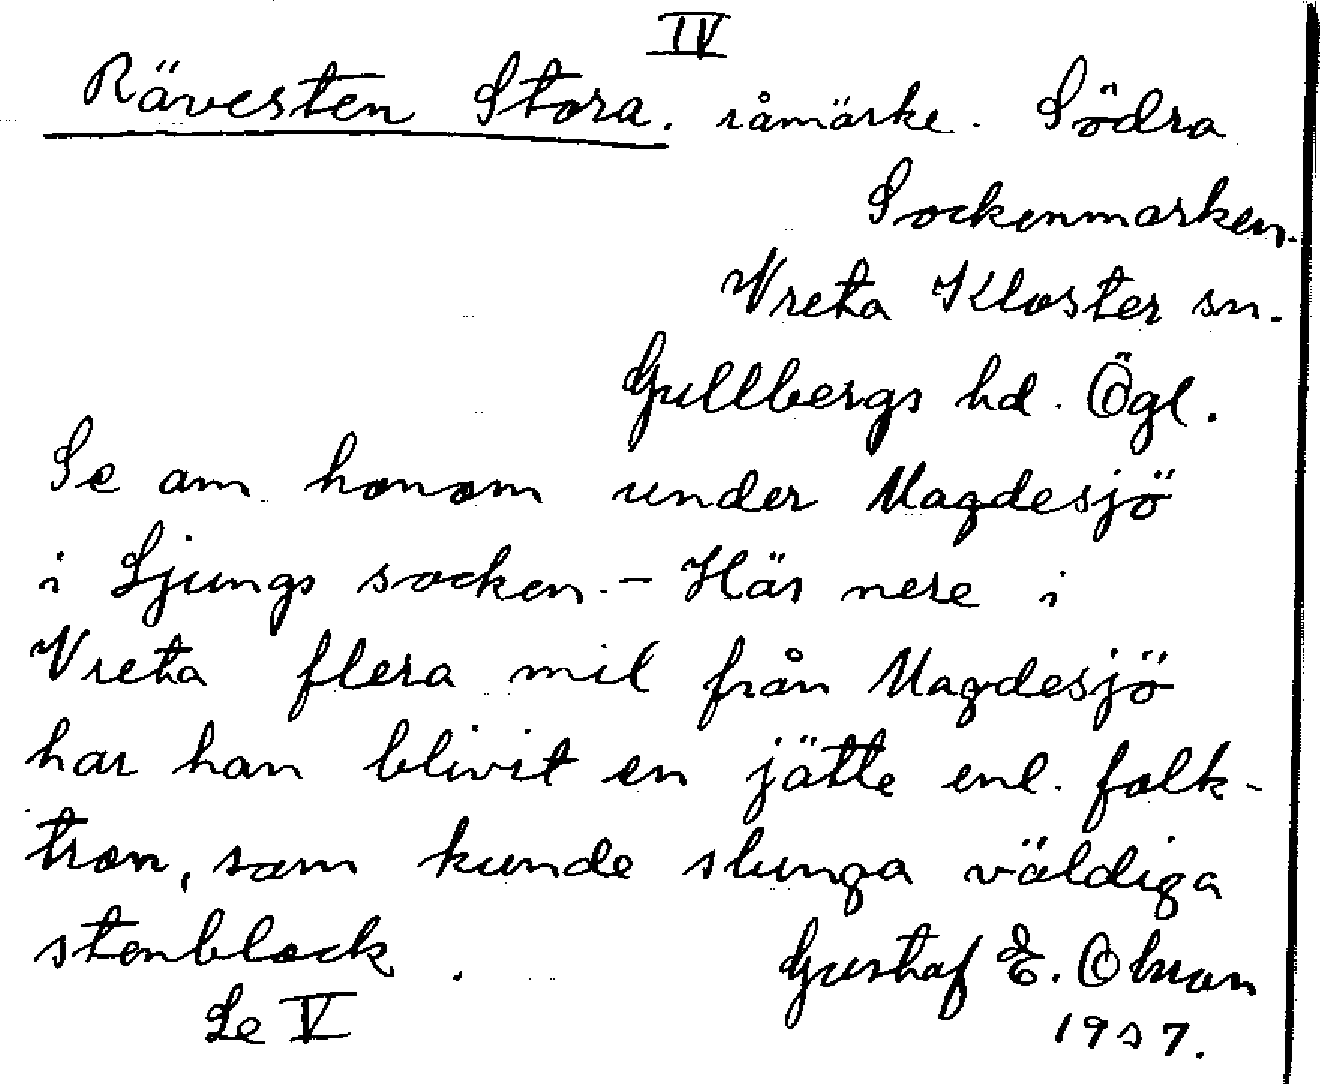 IV
Rävesten Stora. råmärke. Södra
Sockenmarken.
Vreta Kloster sn.
Gullbergs hd. Ögl.
Se om honom under Magdesjö
i Ljungs socken. - Här nere i
Vreta flera mil från Magdesjö
har han blivit en jätte enl. folk-
tron, som kunde slunga väldiga
stenblock.
Gustaf E. Olsson
Se V
1937.